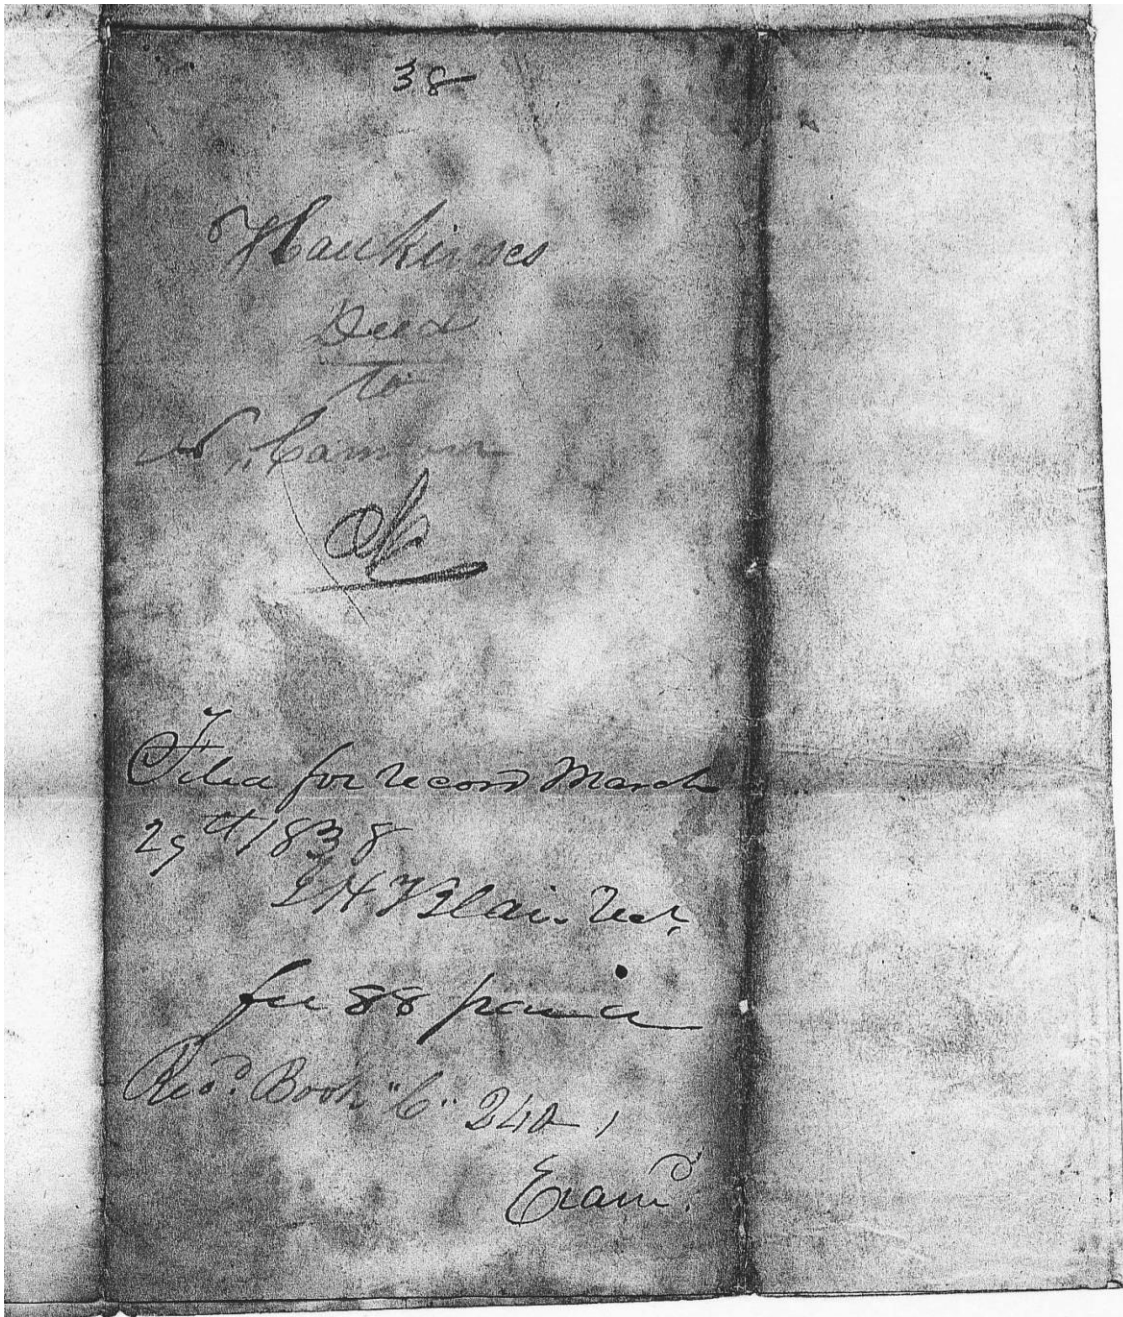 38
Hawkinses
Deed
to
N. Cameron
Filed for record March
29th 1838
Blair Rec.
fee 88 paid
Recd. Book "C" 240
Examd.